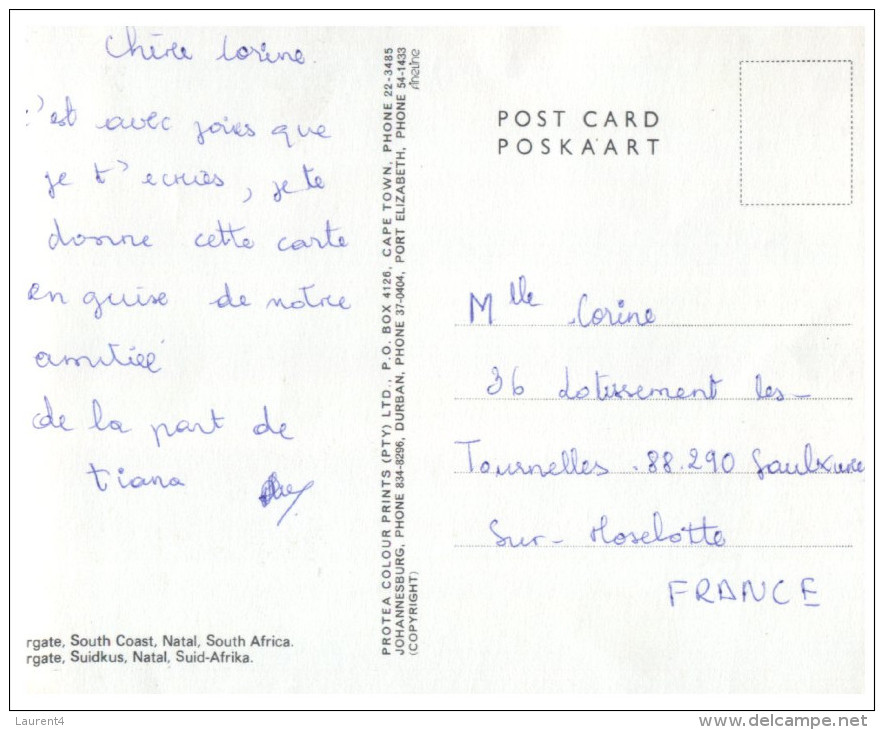 Chère Corine
c'est avec joies que
je t'ecries, je te
donne cette carte
en guise de notre
amitiée
de la part de
tiana
rgate, South Coast, Natal, South Africa.
rgate, Suidkus, Natal, Suid-Afrika.
PROTEA COLOUR PRINTS (PTY) LTD., P.O. BOX 4126, CAPE TOWN, PHONE 22-3485
JOHANNESBURG, PHONE 834-8296, DURBAN, PHONE 37-0404, PORT ELIZABETH, PHONE 54-1433
(COPYRIGHT)
POST CARD
POSKAART
Mlle Corine
36 Lotissement les-
Tournelles .88.290 Saulxure
Sur-Moselotte
FRANCE
Laurent4
www.delcampe.net